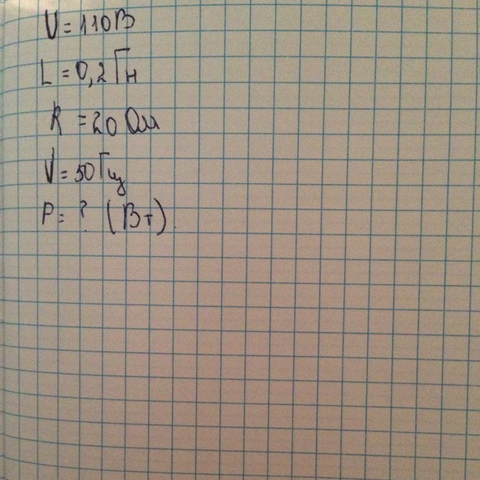 U = 110 В
L = 0,2 Гн
R = 20 Ом
V = 50 Гц
P = ? (Вт)